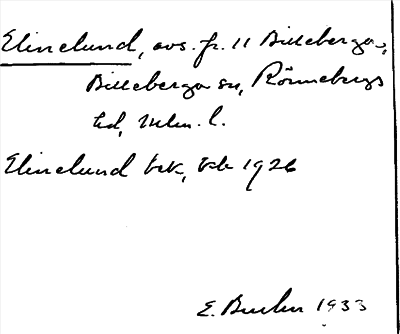 Elinelund, avs. fr. 11 Billeberga,
Billeberga sn, Rönnebergs
hd, Mlm. l.
Elinelund txk, kb 1926
E. Buhr 1933